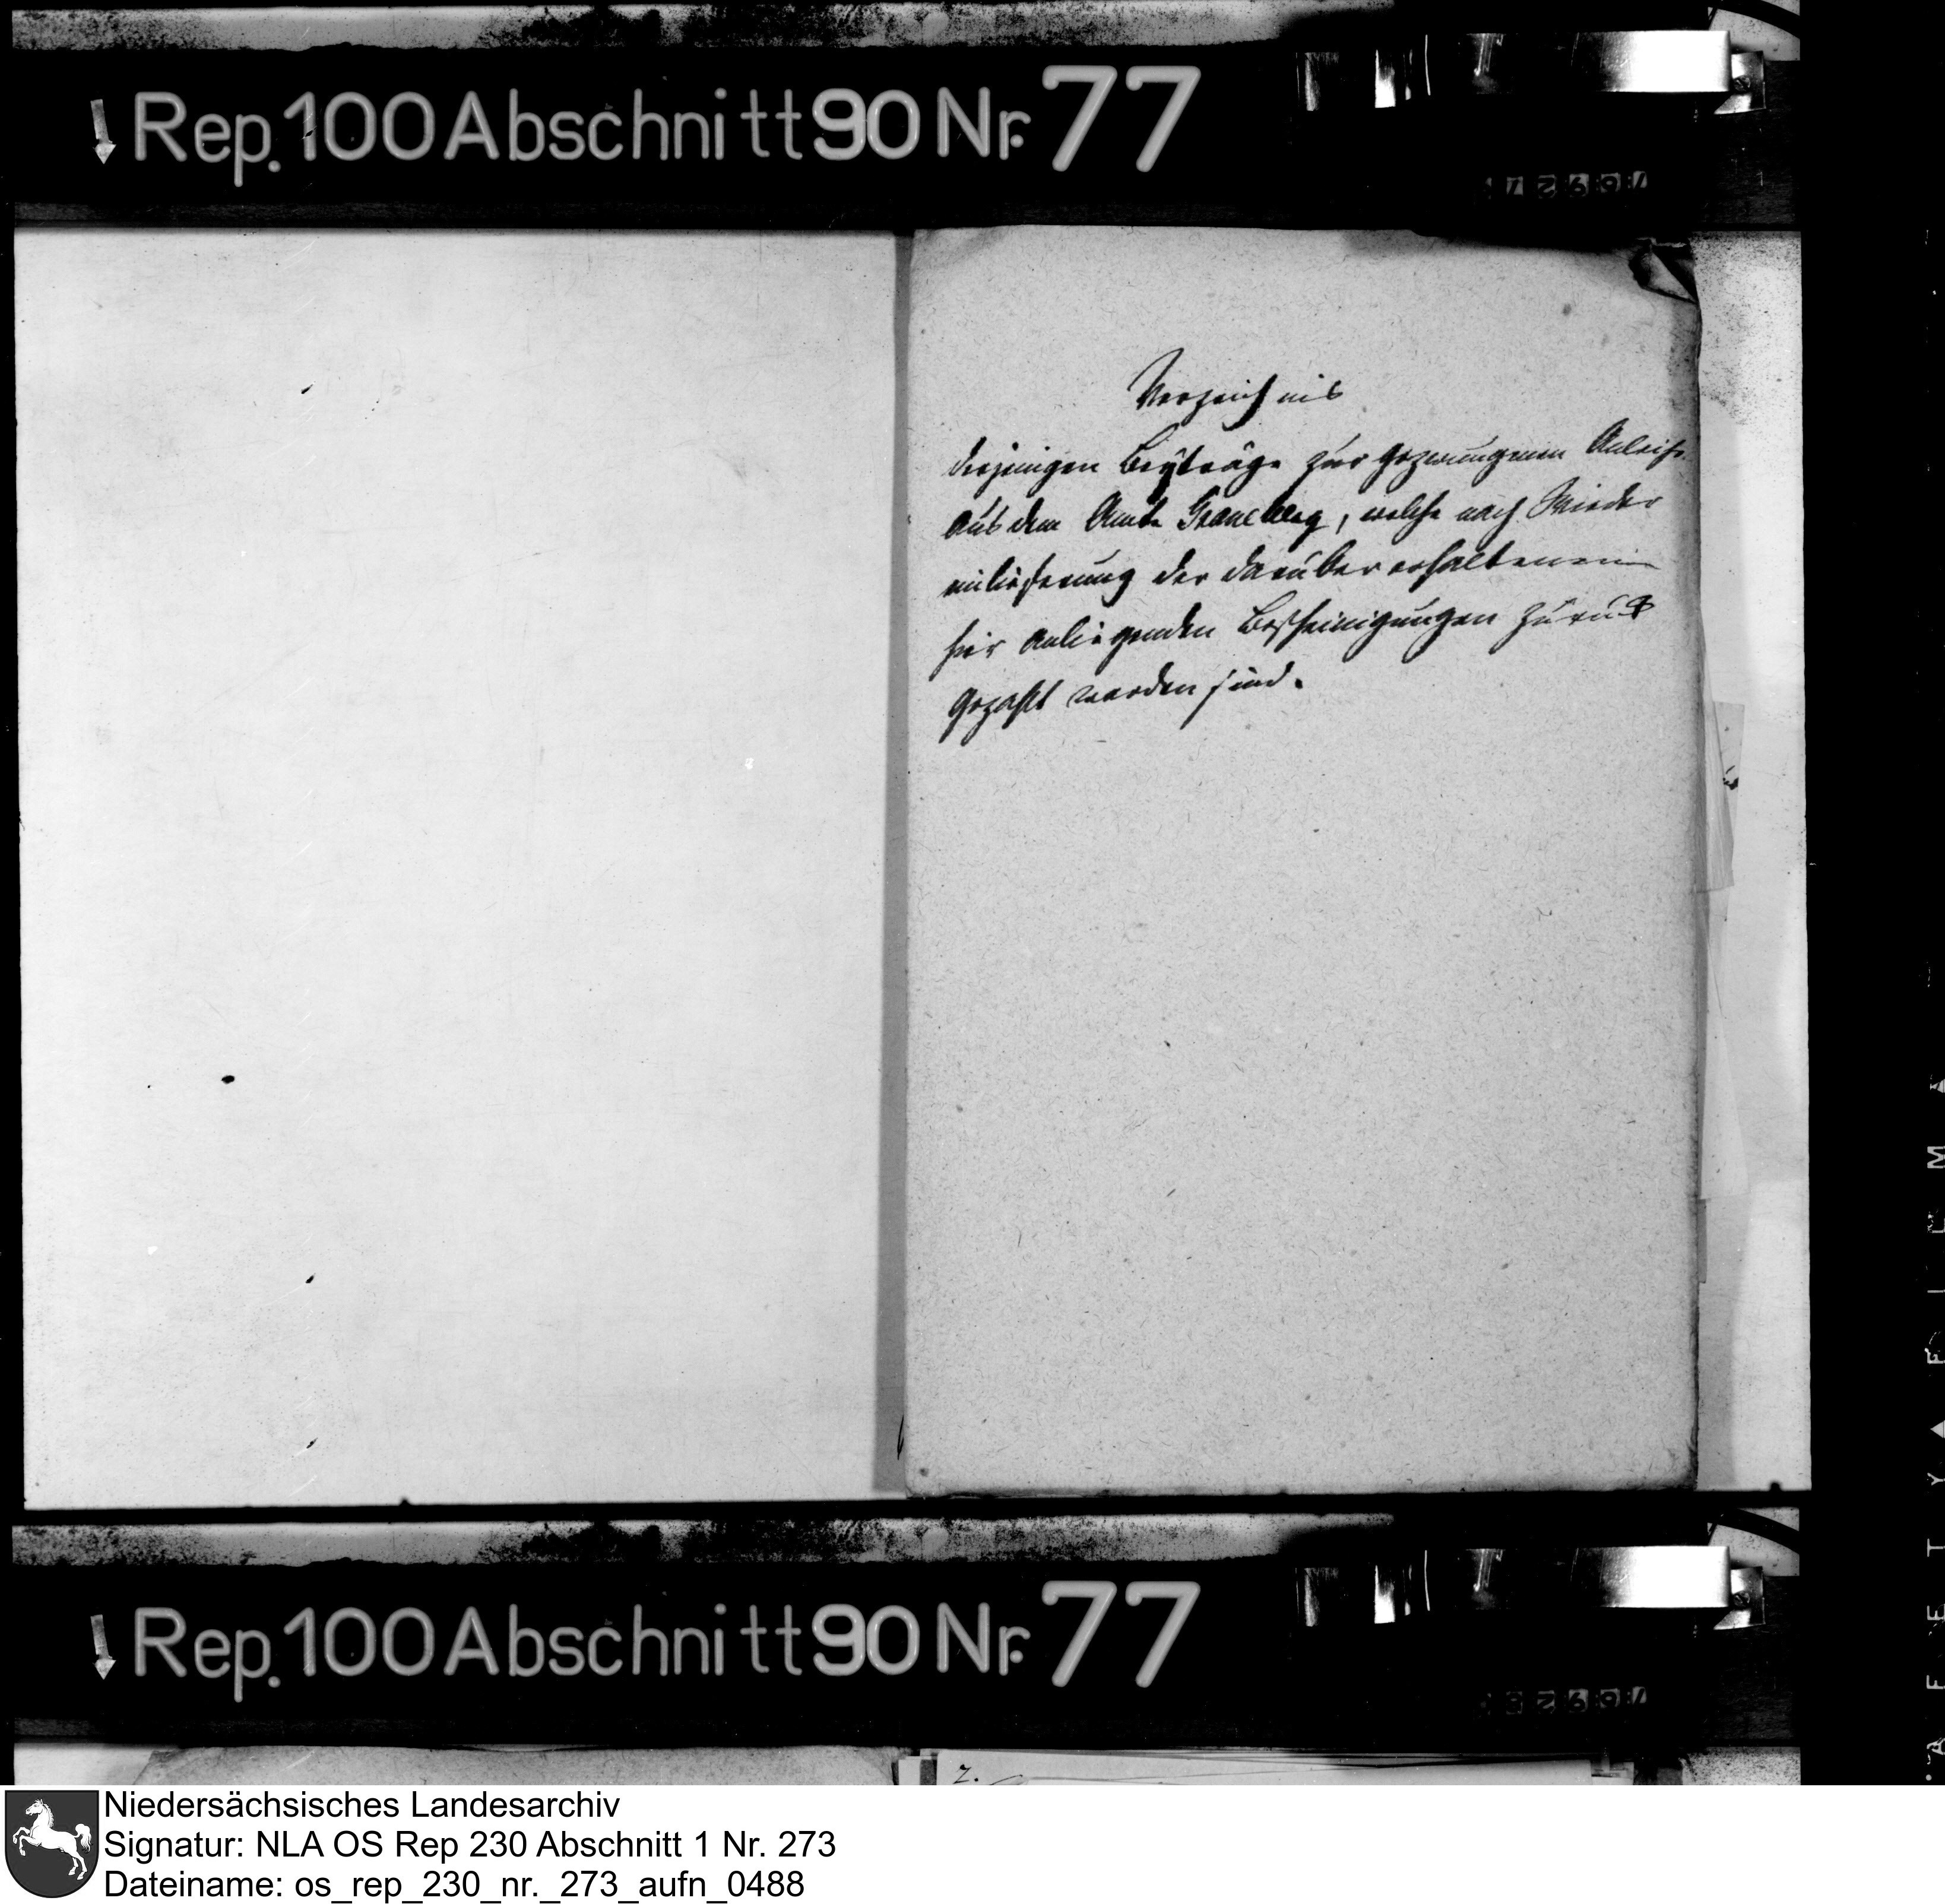 Rep. 100 Abschnitt 90 Nr. 77
Verzeichnis
derjenigen Beyträge zur gezwungenen Anleihe
aus dem Amte Groneberg, welche nach Wieder
einlieferung der darüber erhaltenen
hier anliegenden Bescheinigungen zurück
gezahlt worden sind.
Rep. 100 Abschnitt 90 Nr. 77
2.
Niedersächsisches Landesarchiv
Signatur: NLA OS Rep 230 Abschnitt 1 Nr. 273
Dateiname: os_rep_230_nr._273_aufn_0488